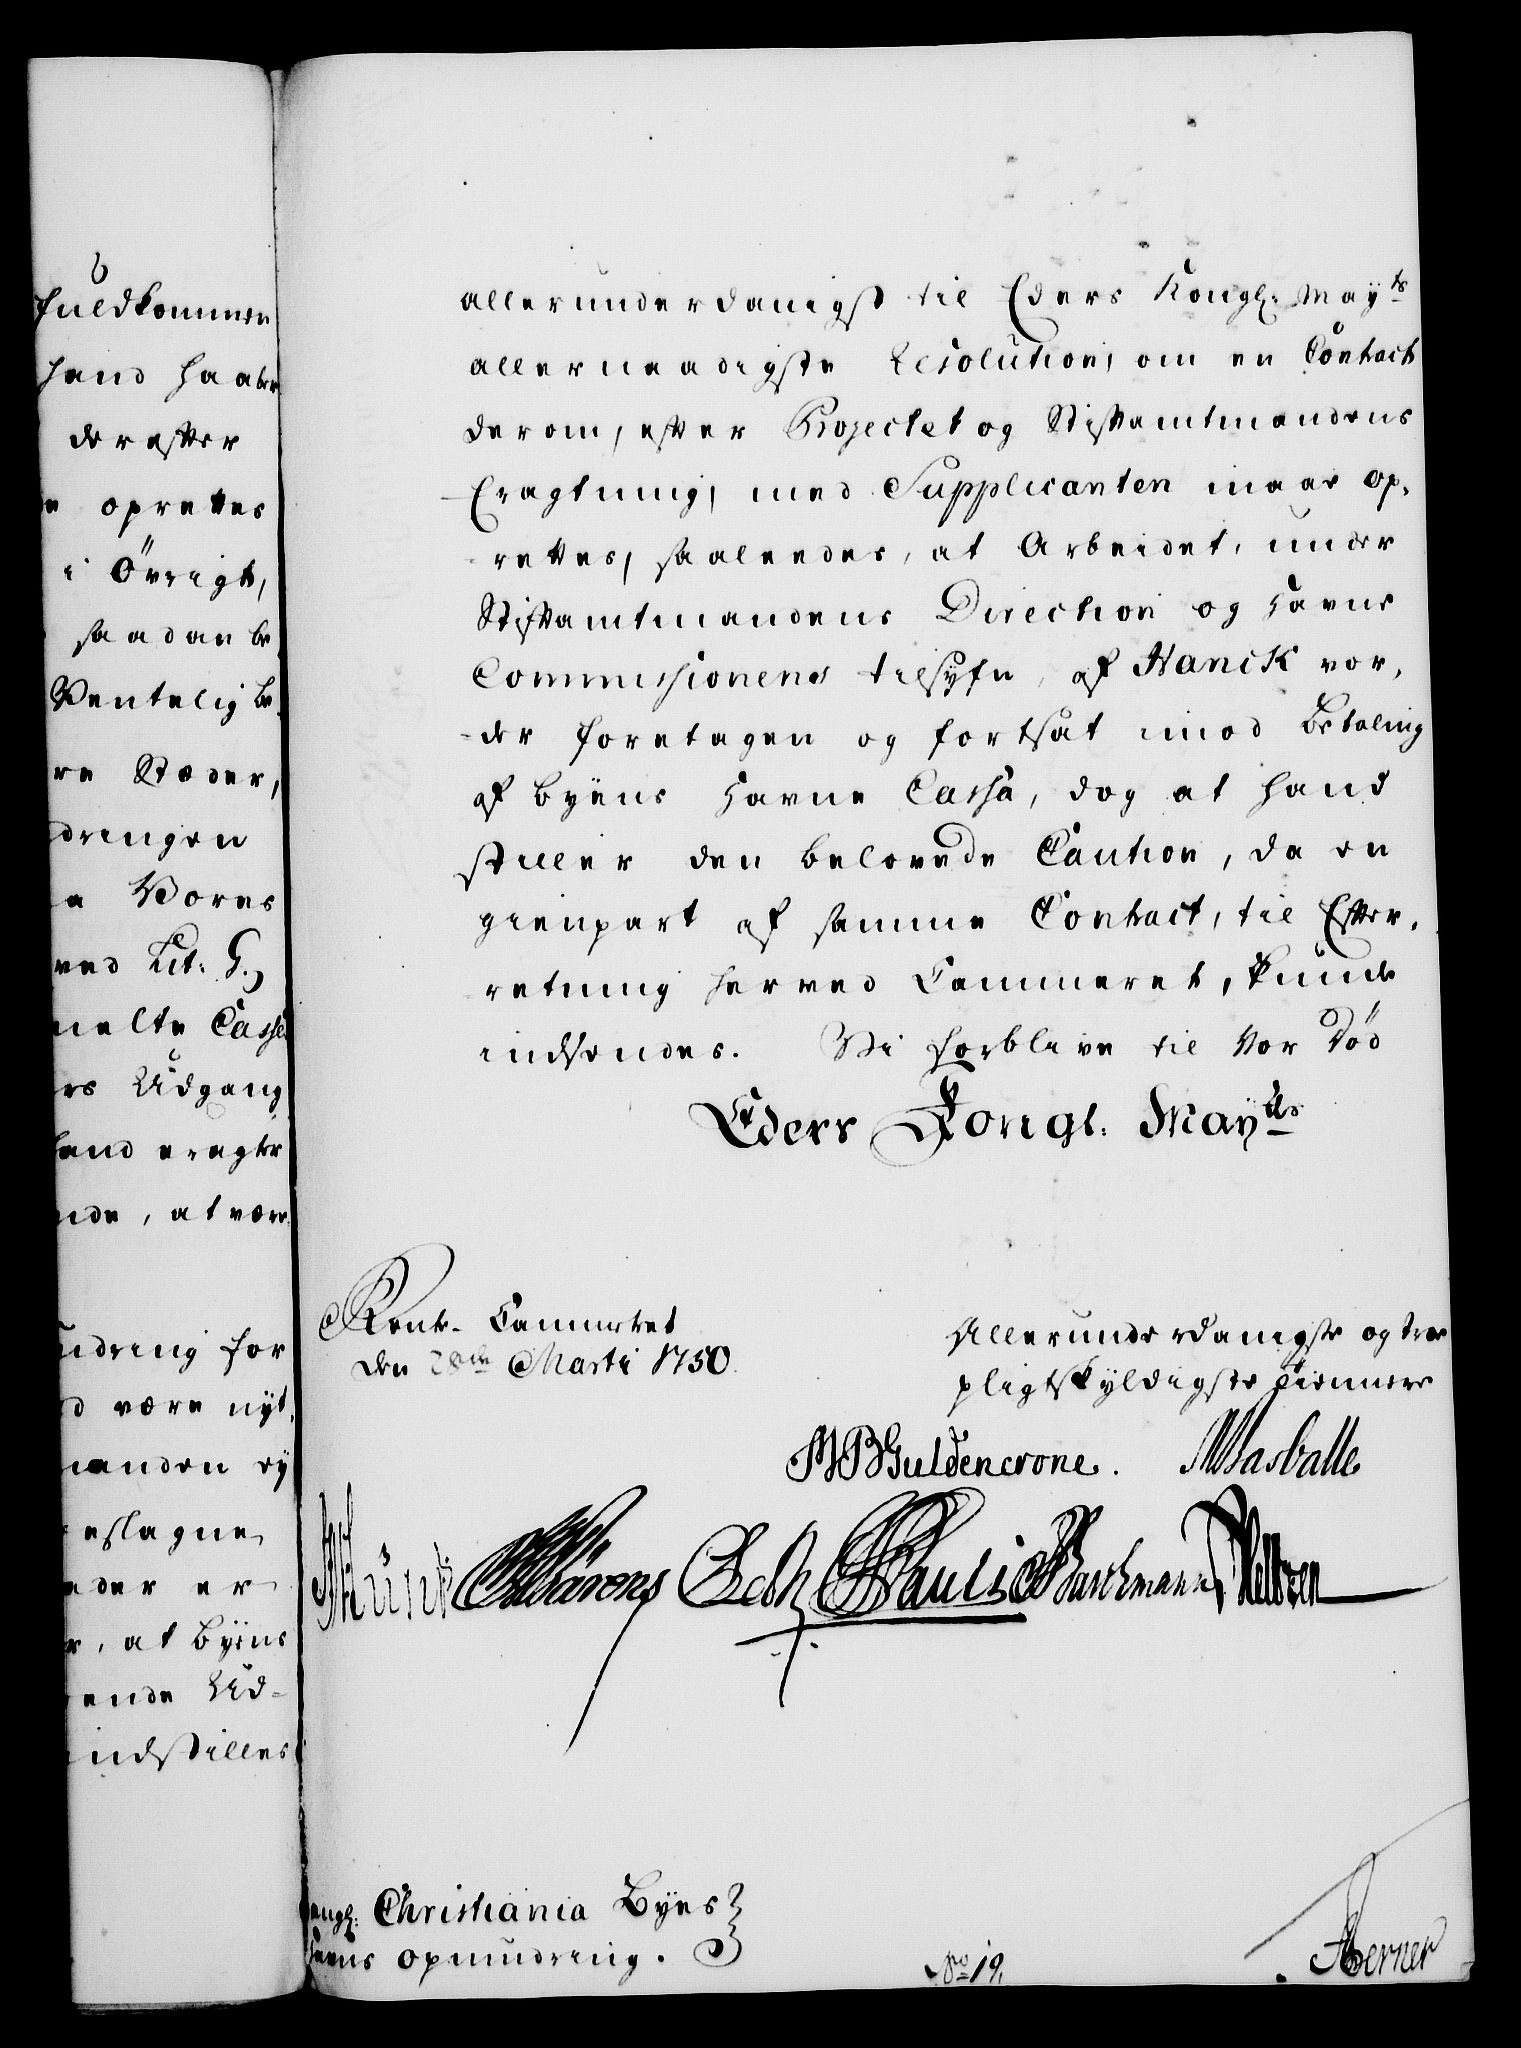 fuldkommen
hand haaber
derefter
oprettes
i Övrigt,
saadan be,
Ventelig be,
re Stæder,
dringen
a Vores
ved Lit: G.
melte Cassa
rs Udgang
hand eragter
nde, at være
udring for
d være nyt,
manden ey
eslagne
eder er
r, at Byens
ende Ud-
indstilles
allerunderdanigst til Eders Kongl: Mayts
allernaadigste Resolution, om en Contract
derom, efter Projectet og Stiftamtmandens
Eragtning, med Supplicanten maae op,
rettes, saaleedes, at Arbeidet, under
Stiftamtmandens Direction og Havne
Commissionens tilsyfn, af Hanck vor,
-der foretagen og fortsat imod Betaling
af Byens Havne Cassa, dog at hand
stiller den belovede Caution, da en
gienpart af samme Contract, til Efter,
retning her ved Cammeret, kunde
indsendes. Vi forblive til Vor Död
Eders Kongl: Mayts
Rente-Cammeret
den 28de Martii 1750.
Allerunderdanigste og troe
pligtskyldigste tiennere
MBGuldencrone. Wasballe
Paulis Barchmann Heltzen
angl: Christiania Byes
opmudring.
No 19.
Berner